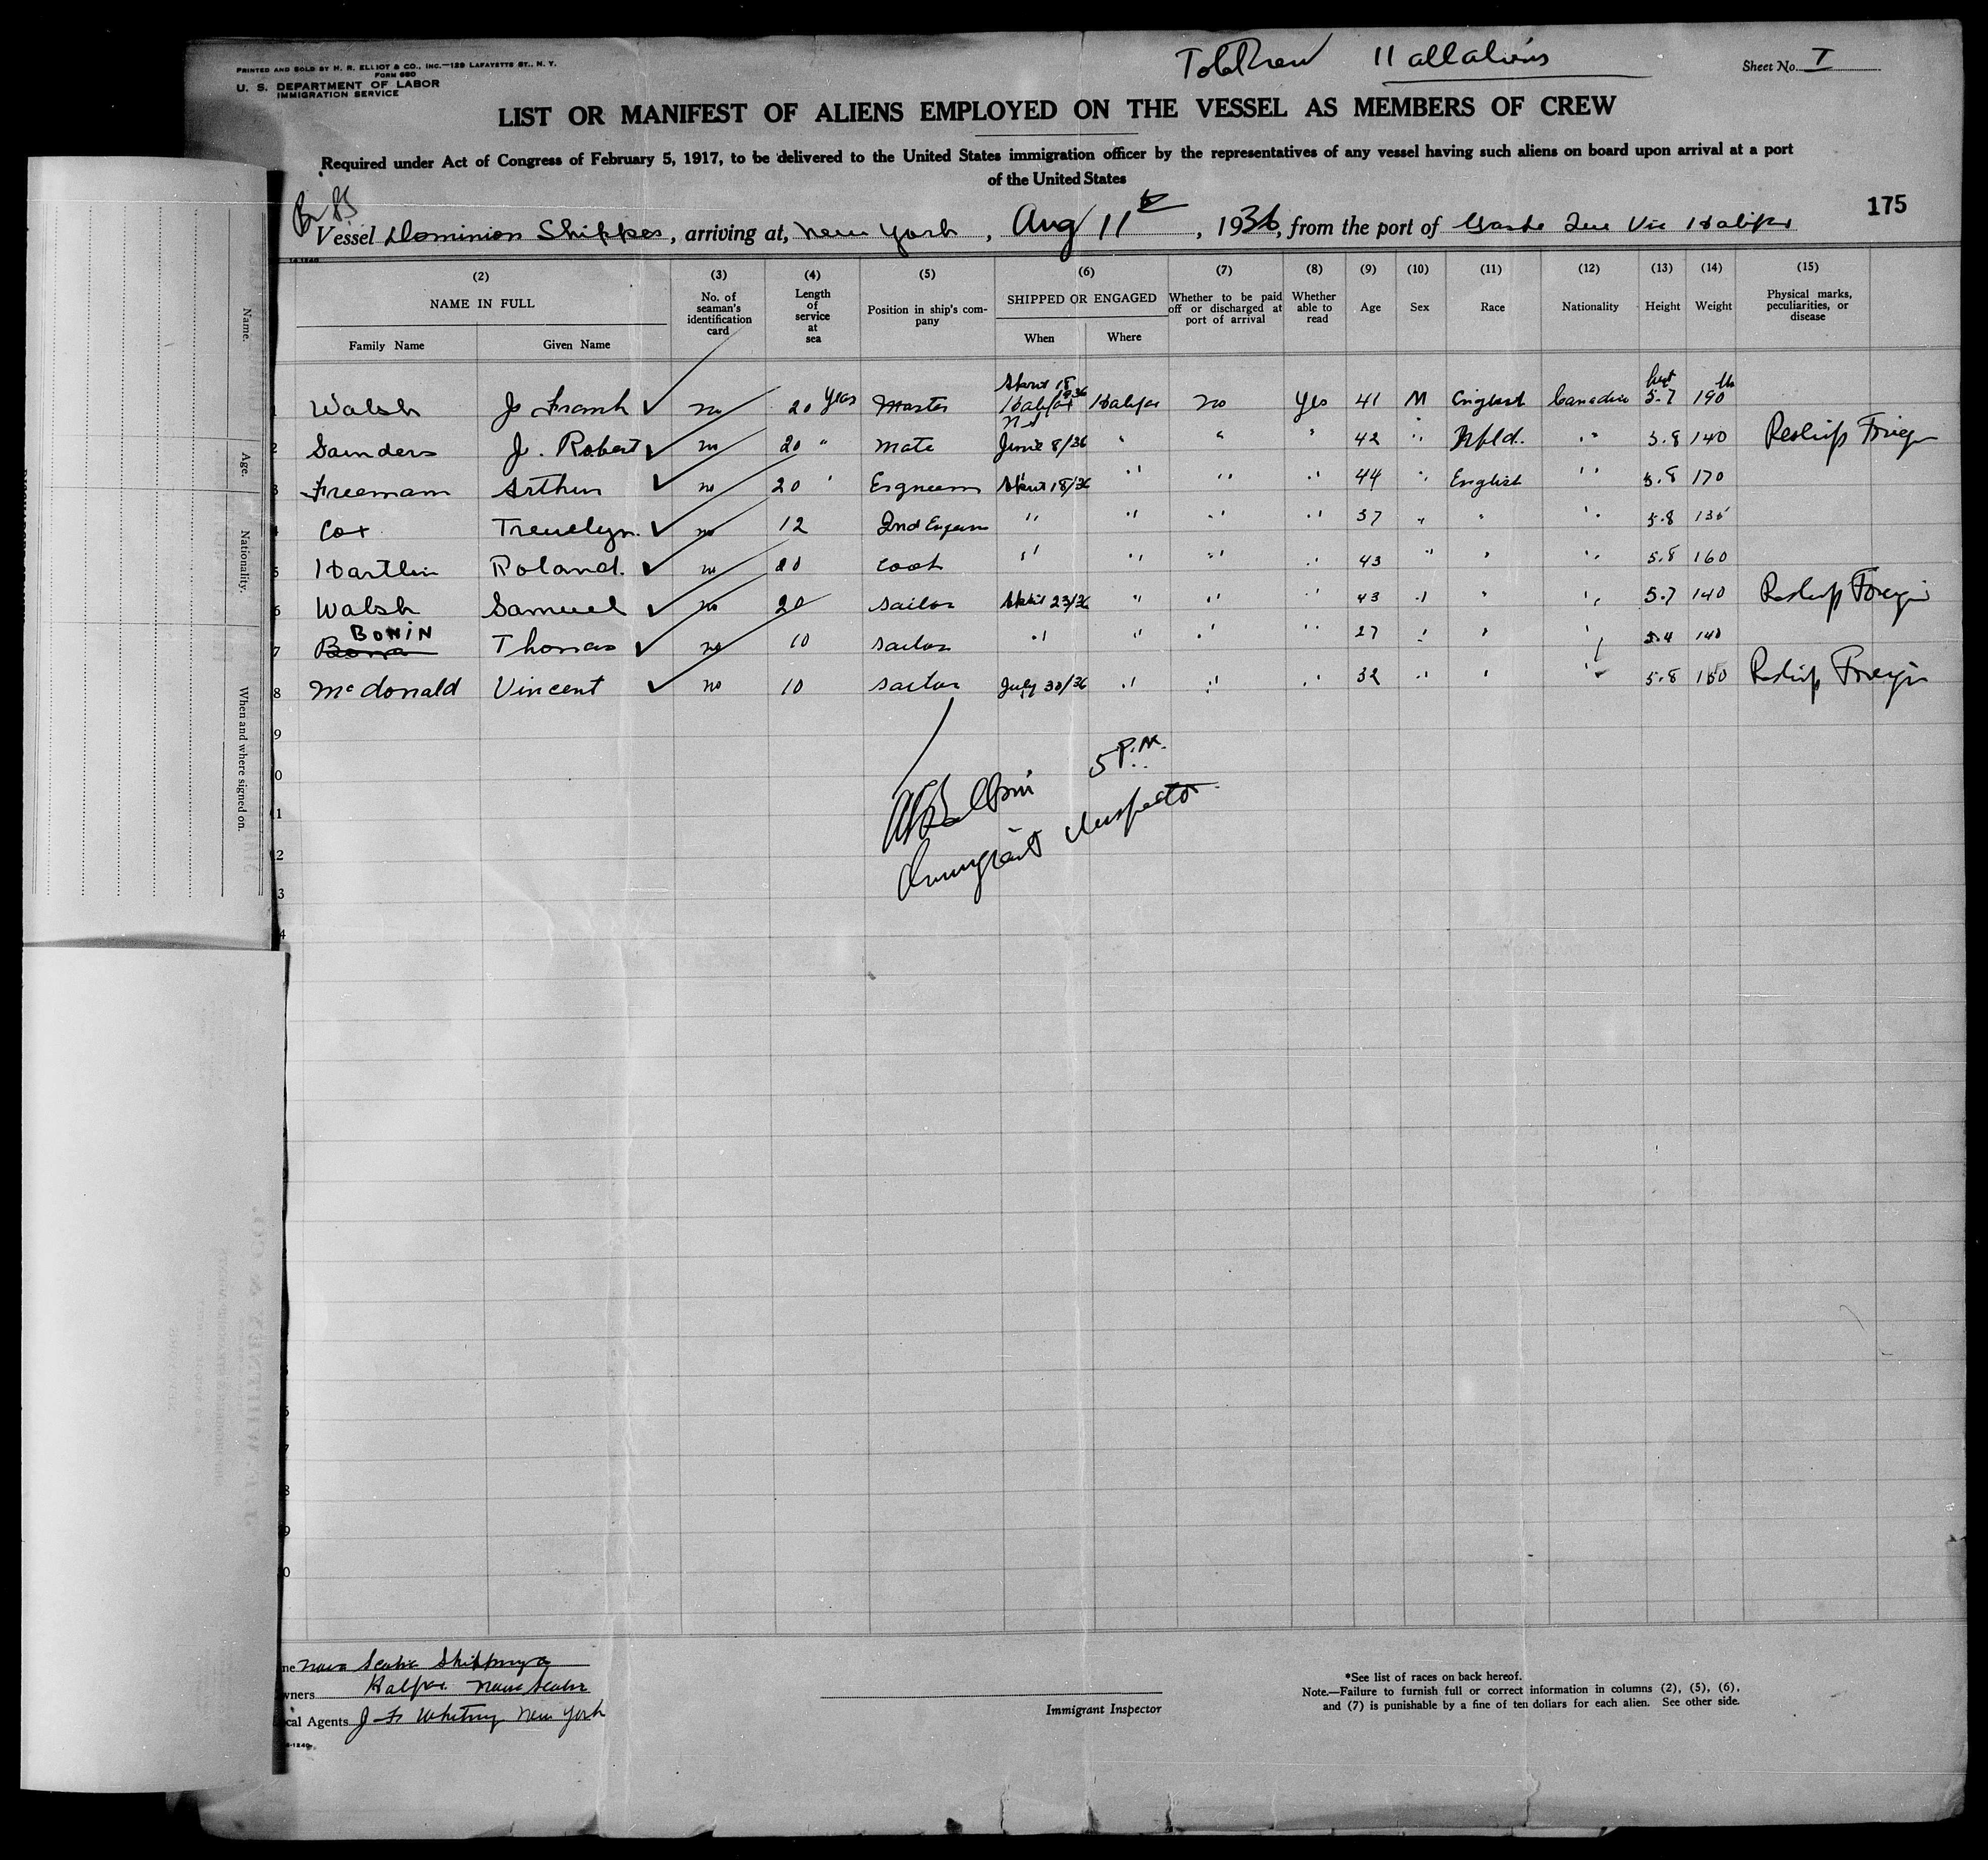 PRINTED AND SOLD BY H. R. ELLIOT & CO., INC.—129 LAFAYETTE ST., N. Y.
FORM 680
U. S. DEPARTMENT OF LABOR
IMMIGRATION SERVICE
11 all aliens
Sheet No. I
LIST OR MANIFEST OF ALIENS EMPLOYED ON THE VESSEL AS MEMBERS OF CREW
Required under Act of Congress of February 5, 1917, to be delivered to the United States immigration officer by the representatives of any vessel having such aliens on board upon arrival at a port
of the United States
175
Vessel Dominion Shipper, arriving at, New York, Aug 11th, 1936, from the port of Gaspe Que Via Halifax
(2) (3) (4) (5) (6) (7) (8) (9) (10) (11) (12) (13) (14) (15)
NAME IN FULL
Family Name Given Name
No. of seaman's identification card
Length of service at sea
Position in ship's company
SHIPPED OR ENGAGED
When Where
Whether to be paid off or discharged at port of arrival
Whether able to read
Age
Sex
Race
Nationality
Height
Weight
Physical marks, peculiarities, or disease
1 Walsh J. Frank ✓ no 20 years Master Halifax Halifax no Yes 41 M English Canadian 5.7 190
2 Saunders J. Robert ✓ no 20 " Mate June 8/36 " " " 42 " Nfld. " 5.8 140 Reship Foreign
3 Freeman Arthur ✓ no 20 " Engineer 18/36 " " " 44 " English " 5.8 170
4 Cox ✓ no 12 2nd Engineer " " " " 37 " " " 5.8 135
5 Hartlin Roland. ✓ no 20 Cook " " " " 43 " " " 5.8 160
6 Walsh Samuel ✓ no 20 Sailor 23/36 " " " 43 " " " 5.7 140 Reship Foreign
BONIN
7 Thomas ✓ no 10 Sailor " " " " 27 " " " 5.4 140
8 McDonald Vincent ✓ no 10 Sailor July 30/36 " " " 32 " " " 5.8 150 Reship Foreign
9
5 P.M.
Immigrant Inspector
Nova Scotia Shipping Co
Owners Halifax Nova Scotia
Local Agents J F Whitney New York
Immigrant Inspector
*See list of races on back hereof.
Note.—Failure to furnish full or correct information in columns (2), (5), (6),
and (7) is punishable by a fine of ten dollars for each alien. See other side.
Name.
Age.
Nationality.
When and where signed on.